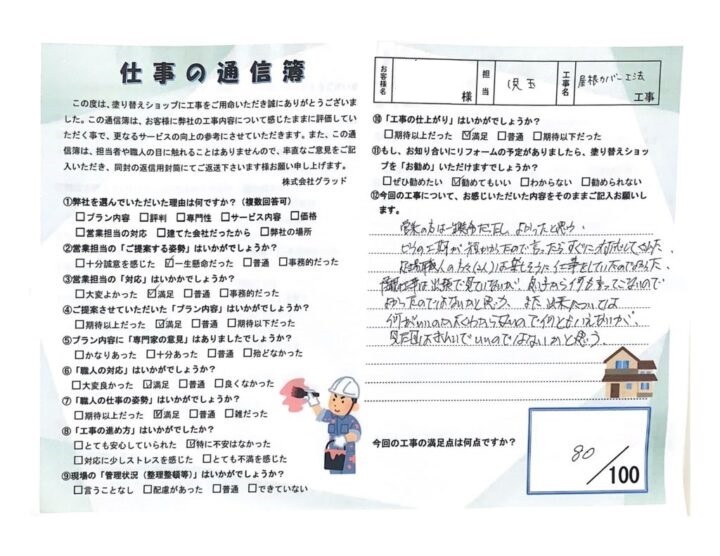 仕事の通信簿
この度は、塗り替えショップに工事をご用命いただき誠にありがとうございま
した。この通信簿は、お客様に弊社の工事内容について感じたままに評価してい
ただく事で、更なるサービスの向上の参考にさせていただきます。また、この通
信簿は、担当者や職人の目に触れることはありませんので、率直なご意見をご記
入いただき、同封の返信用封筒にてご返送下さいます様お願い申し上げます。
株式会社グラッド
①弊社を選んでいただいた理由は何ですか?(複数回答可)
□プラン内容 □評判 □専門性 □サービス内容 □価格
□営業担当の対応 □建てた会社だったから □弊社の場所
②営業担当の「ご提案する姿勢」はいかがでしょうか?
□十分誠意を感じた ☑一生懸命だった □普通 □事務的だった
③営業担当の「対応」はいかかでしょうか?
□大変よかった ☑満足 □普通 □事務的だった
④ご提案させていただいた「プラン内容」はいかがでしょうか?
□期待以上だった ☑満足 □普通 □期待以下だった
⑤プラン内容に「専門家の意見」はありましたでしょうか?
□かなりあった □十分あった □普通 □殆どなかった
⑥「職人の対応」はいかがでしょうか?
□大変良かった ☑満足 □普通 □良くなかった
⑦「職人の仕事の姿勢」はいかがでしょうか?
□期待以上だった ☑満足 □普通 □雑だった
⑧「工事の進め方」はいかがでしたか?
□とても安心していられた ☑特に不安はなかった
□対応に少しストレスを感じた □とても不満を感じた
⑨現場の「管理状況(整理整頓等)」はいかがでしょうか?
□言うことなし □配慮があった □普通 □できていない
お客様名 様 担当 児玉 工事名 屋根カバー工法 工事
⑩「工事の仕上がり」はいかがでしょうか?
□期待以上だった ☑満足 □普通 □期待以下だった
⑪もし、お知り合いにリフォームの予定がありましたら、塗り替えショッ
プを「お勧め」いただけますでしょうか?
□ぜひ勧めたい ☑勧めてもいい □わからない □勧められない
⑫今回の工事について、お感じいただいた内容をそのままご記入お願いし
ます。
営業の方は一生懸命だったし、よかったと思う。
よかったのではないかと思う。また、出来については
何がいいのかよくわからないので何ともいえないが、
見た目はきれいでいいのではないかと思う。
今回の工事の満足点は何点ですか?
80/100